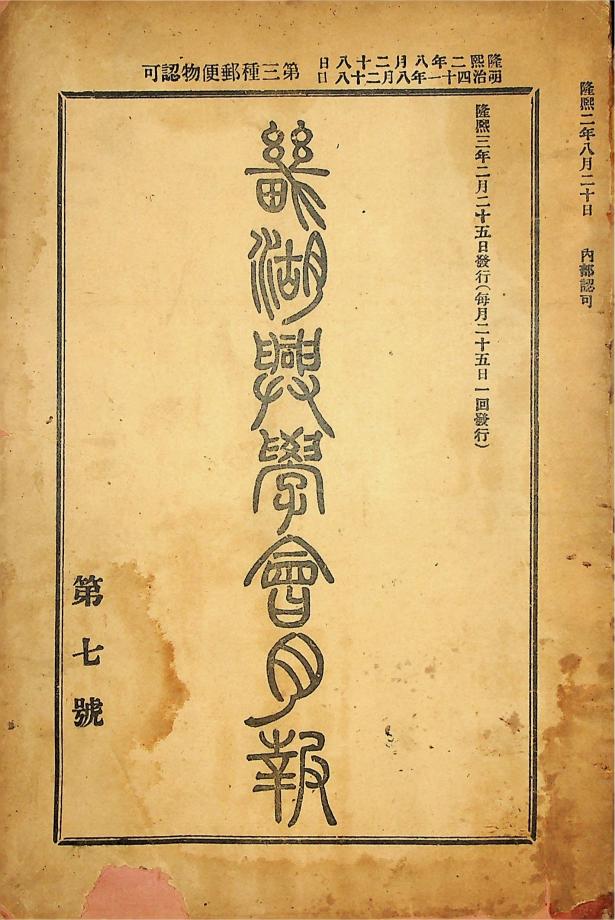 隆熙二年八月二十日 內部認可
隆熙二年八月二十八日
明治四十一年八月二十八日
第三種郵便物認可
隆熙三年二月二十五日發行(每月二十五日一回發行)
畿湖興學會月報
第七號